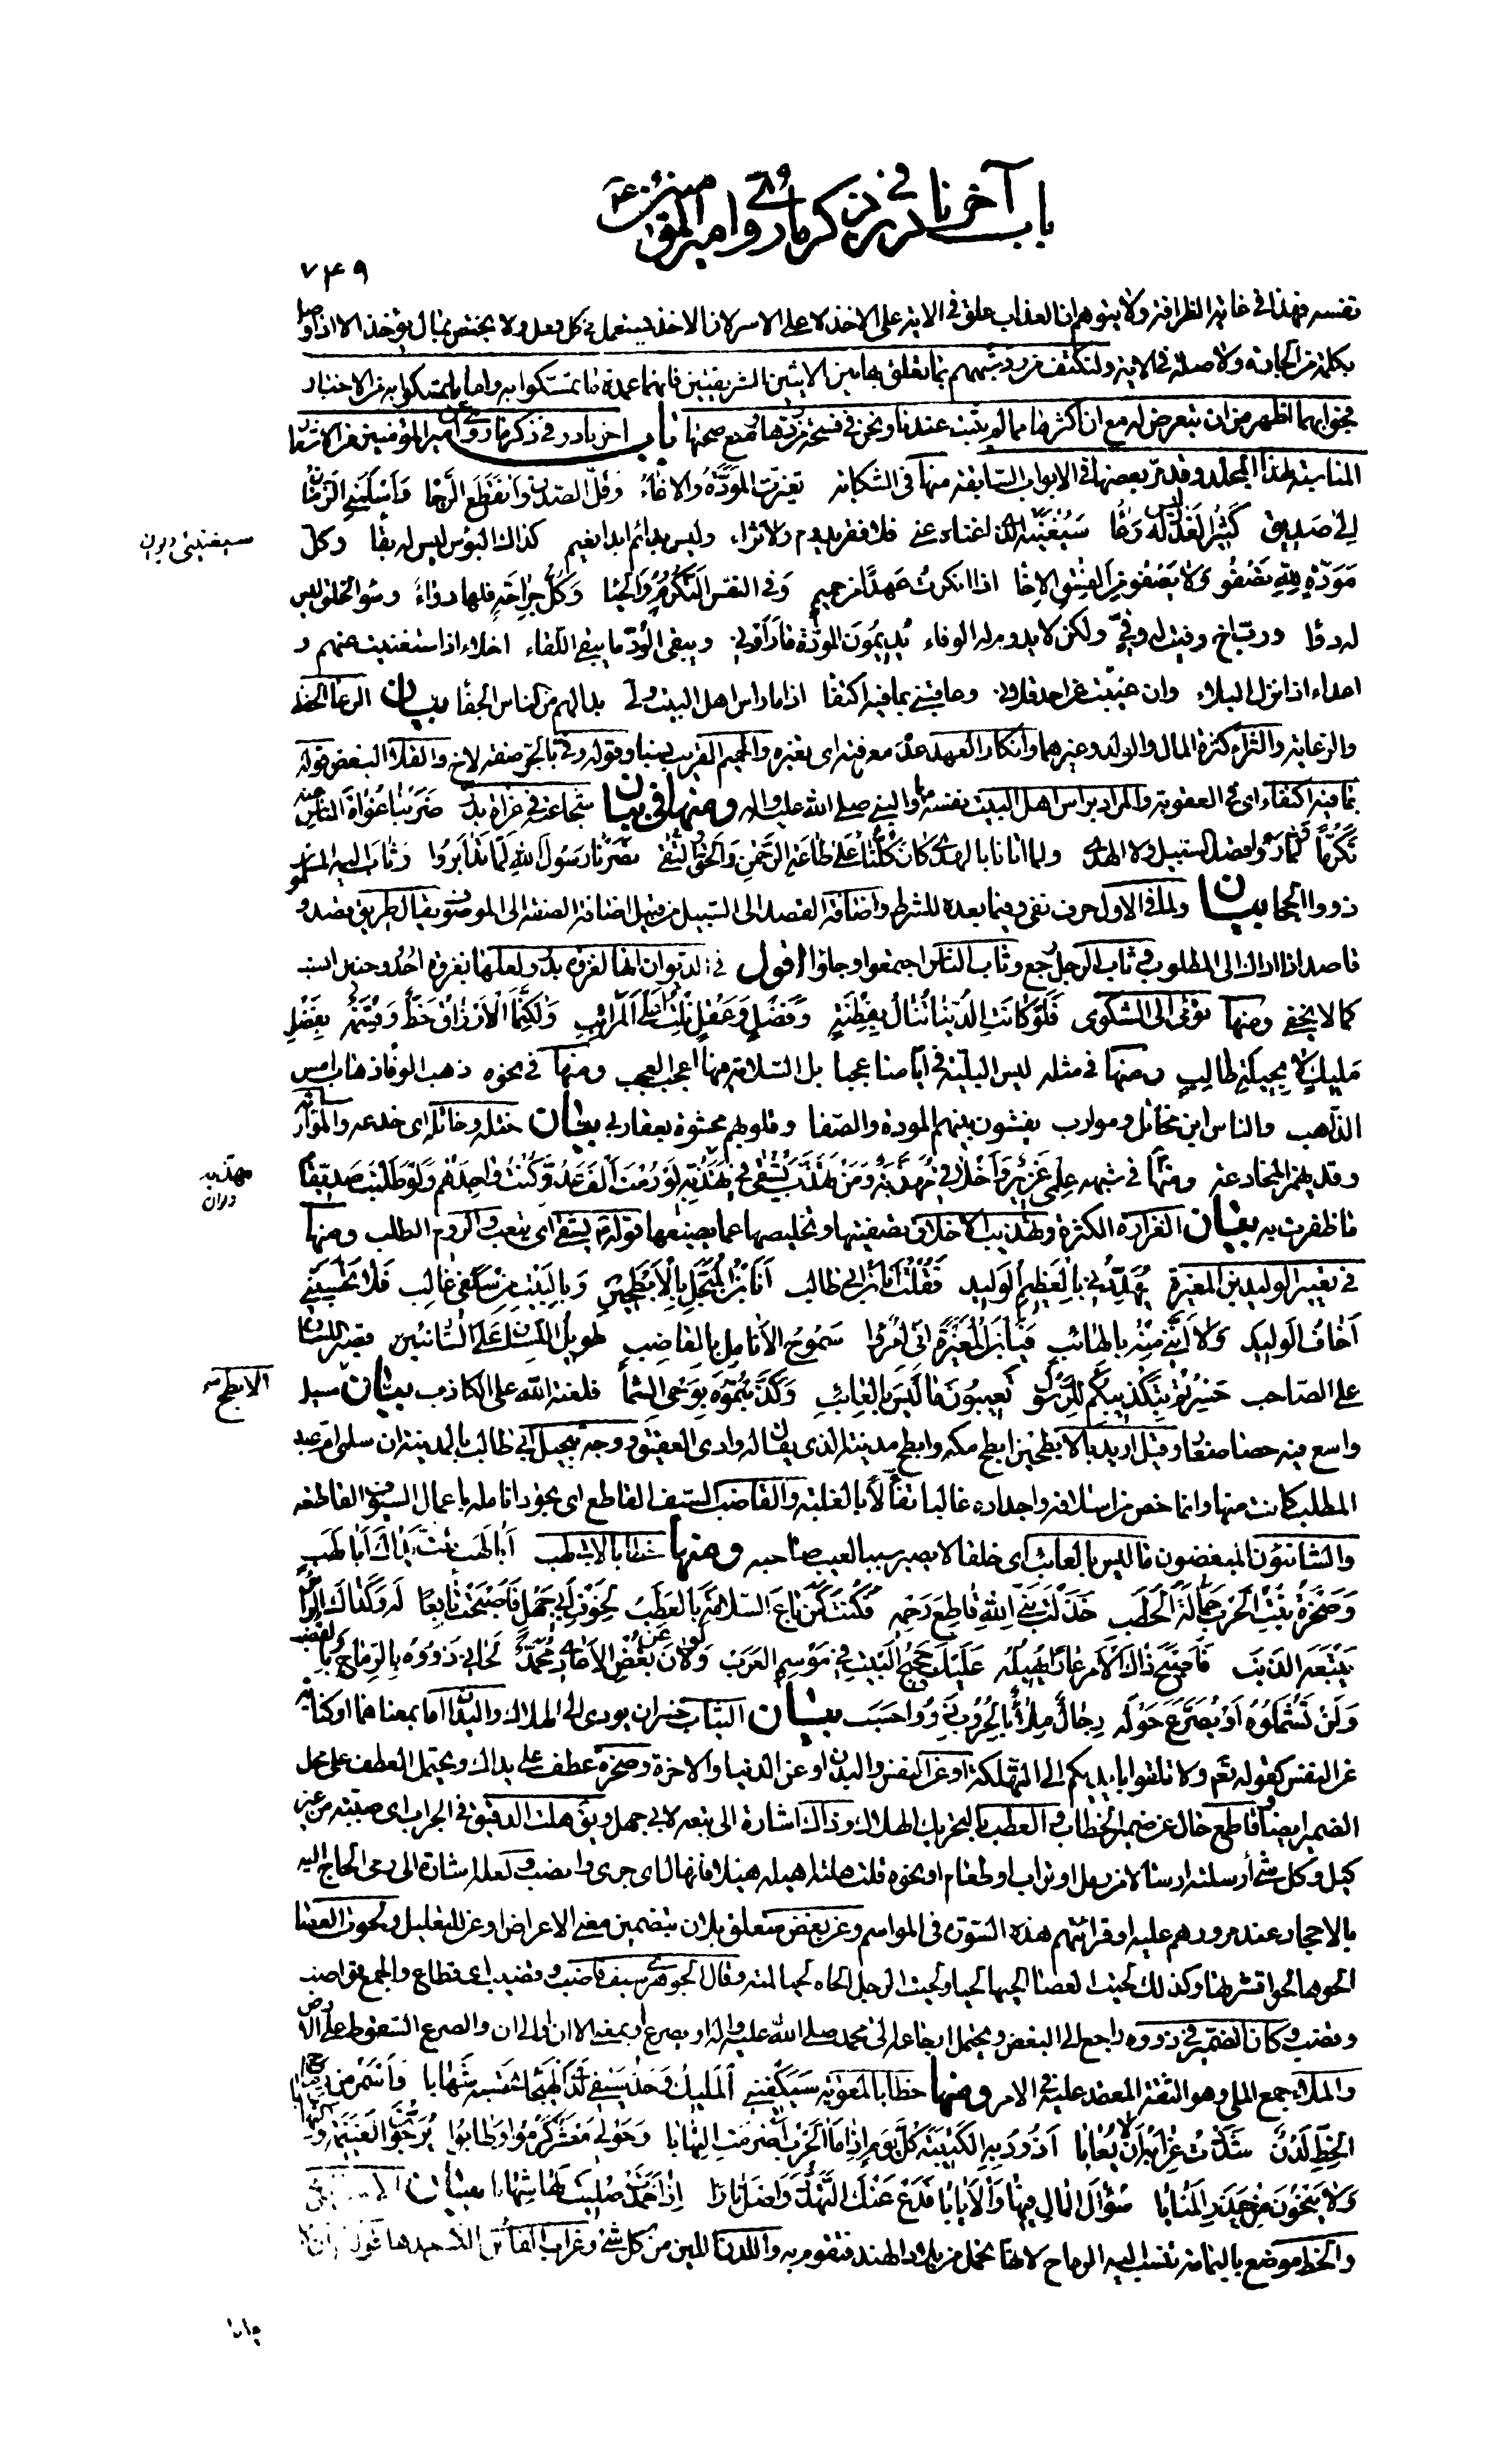 باب آخر نادر في ذكر ما روي عن أمير المؤمنين ع
٧٤٩
نفسه فهذا في غاية الظرافة ولا يتوهم ان العذاب علق في الاية على الاخذ لا على الاسر لان الاخذ يستعمل في كل فعل ولا يختص بمال يؤخذ الا اذا وصل
بكلمة من الجارة ولا صلة في الاية ولنكتف من رد شبههم بما يتعلق بهاتين الايتين الشريفتين فانهما عمدة ما تمسكوا به واما ما تمسكوا به من الاخبار
فجوابها اظهر من ان يتعرض له مع ان اكثرها مما لم يثبت عندنا ونحن في فسحة من ردها ومنع صحتها باب اخر نادر في ذكر ما روي عن امير المؤمنين من الاشعار
المناسبة لهذا المجلد وقد مر بعضها في الابواب السابقة منها في الشكاية تغيرت المودة والاخاء وقل الصدق وانقطع الرجا واسلمني الزمان
الى صديق كثير الغدر ليس له رعا سيغنيني الذي اغناه عني فلا فقر يدوم ولا ثراء وليس بدائم ابدا نعيم كذاك البؤس ليس له بقا وكل
مودة لله تصفو ولا يصفو من الفسق الاخا اذا انكرت عهدا من حميم وفي النفس التكرم والحيا وكل جراحة فلها دواء وسوء الخلق ليس
له دوا ورب اخ وفيت له وفي ولكن لا يدوم له الوفاء يديمون المودة ما رأوني ويبقى الود ما يبقى اللقاء اخلاء اذا استغنيت عنهم و
اعداء اذا نزل البلاء وان غيبت عن احد قلاني وعاقبني بما فيه اكتفا اذا ما راس اهل البيت ولى بدا لهم من الناس الجفا بيان الرعا الحفظ
والرعاية والثراء كثرة المال والولد وغيرهما وانكار العهد عدم معرفته اى تغيره والحميم القريب نسبا وقوله وفي بالجر صفة لاخ والقلاء البغض قوله
بما فيه اكتفاء اى في العقوبة والمراد براس اهل البيت نفسه او النبي صلى الله عليه واله ومنها في بيان شجاعته في غزاة بدر ضربنا غواة الناس عنه
تكرما ولما رأوا قصد السبيل ولا الهدى ولما اتانا بالهدى كان كلنا على طاعة الرحمن والحق والتقى نصرنا رسول الله لما تدابروا وثاب اليه المسلمون
ذووا الحجا بيان ولما في الاول حرف نفي وفيما بعده للشرط واضافة القصد الى السبيل من قبيل اضافة الصفة الى الموصوف يقال طريق قصد و
قاصد اذا اداك الى المطلوب وثاب الرجل رجع وثاب الناس اجتمعوا وجاؤا اقول في الديوان انها لغزوة بدر ولعلها بغزوة احد وحنين انسب
كما لا يخفى ومنها فلو كانت الدنيا تنال بفطنة وفضل وعقل نلت اعلى المراتب ولكنما الارزاق حظ وقسمة بفضل
مليك لا بحيلة طالب ومنها في مثله ليس البلية في ايامنا عجبا بل السلامة فيها اعجب العجب ومنها في نحوه ذهب الوفاء ذهاب امس
الذاهب والناس بين مخاتل وموارب يفشون بينهم المودة والصفا وقلوبهم محشوة بعقارب بيان ختله وخاتله اى خدعه والموارب
وقد يهمز المخادعة ومنها في شبهه علمي غزير واخلاقي مهذبة ومن تهذب يشقى في تهذبه لو رمت الف عدو كنت واجدهم ولو طلبت صديقا
ما ظفرت به بيان الغزارة الكثرة وتهذيب الاخلاق تصفيتها وتخليصها عما يضيعها قوله يشقى اى يتعب والروم الطلب ومنها
في تعيير الوليد بن المغيرة يهددني بالعظيم الوليد فقلت انا ابن ابي طالب انا ابن المبجل بالابطحين وبالبيت من سلفي غالب فلا تحسبني
اخاف الوليد ولا انني منه بالهائب فيا ابن المغيرة اني امرؤ سموح الانامل بالقاضب طويل اللسان على الشانئين قصير اللسان
على الصاحب خسرتم بتكذيبكم للرسول تعيبون ما ليس بالعائب وكذبتموه بوحي السما فلعنة الله على الكاذب بيان مسيل
واسع فيه حصا صغار وقيل اريد بالابطحين ابطح مكة وابطح مدينة الذي يقال له وادي العقيق ووجه تبجيل ابي طالب بالمدينة ان سلمى ام عبد
المطلب كانت منها وانما خص من اسلافه واجداده غالبا تفألا بالغلبة والقاضب السيف القاطع اى يجود انامله باعمال السيوف القاطعة
والشانئون المبغضون ما ليس بالعائب اى خلقا لا يصير سببا لعيب صاحبه ومنها خطابا لابي لهب ابا لهب تبت يداك ابا لهب
وصخرة بنت الحرب حمالة الحطب خذلت نبي الله قاطع رحمه فكنت كمن باع السلامة بالعطب لخوف ابي جهل فاصبحت تابعا له وكذاك الراس
يتبعه الذنب فاصبح ذاك الامر عارا يهيله عليك حجيج البيت في موسم العرب ولو لان بعض الاعادي محمد لحانى ذووه بالرماح وبالقضب
ولن تشملوه او يصرع حوله رجال ملاء بالحروب ذوو احسب بيان التباب خسران يؤدي الى الهلاك واليدان اما بمعناهما او كناية
عن النفس كقوله تعم ولا تلقوا بايديكم الى التهلكة او عن النفس والبدن او عن الدنيا والاخرة وصخرة عطف على يداك ويحتمل العطف على محل
الضمير ايضا وقاطع حال عن ضمير الخطاب والعطب بالتحريك الهلاك وذاك اشارة الى تبعه لابي جهل ويق هلت الدقيق في الجراب اى صببته من غير
كيل وكل شئ أرسلته ارسالا من رمل او تراب او طعام او نحوه قلت هلته اهيله هيلا فانهال اى جرى وانصب ولعله اشارة الى رمى الحاج اليه
بالاحجار عند مرورهم عليه او قرائتهم هذه السورة في المواسم وعن بعض متعلق بلان بتضمين معنى الاعراض او عن للتعليل ولحوت العصا
الحوها لحوا قشرتها وكذلك لحيت العصا الحيها لحيا ولحيت الرجل الحاه لحيا لمته وقال الجوهري سيف قاضب وقضيب اى قطاع والجمع قواضب
وقضب وكان الضمير في ذووه راجع الى البغض ويحتمل ارجاعه الى محمد صلى الله عليه واله او يصرع او بمعنى الا ان او الى ان والصرع السقوط على الارض
والملاء جمع الملى وهو الثقة المعتمد عليه في الامر ومنها خطابا لمعوية سيكفيني المليك وحد سيفي لدى الهيجا تحسبه شهابا واسمر من رماح
الخط لدن شددت غرابه ان لا يعابا اذود به الكتيبة كل يوم اذا ما الحرب اضرمت التهابا وحولي معشر كرموا وطابوا يرجون الغنيمة والنهابا
ولا ينحون من حذر المنايا سؤال المال فيها والايابا فدع عنك التهدد واصل نارا اذا خمدت صليت لها شهابا بيان
والخط موضع باليمامة تنسب اليه الرماح لانها تحمل من بلاد الهند فتقوم به واللدن اللين من كل شئ وغراب الفأس حدها
سيغنيني ديوان
مهذبه ديوان
الابطح